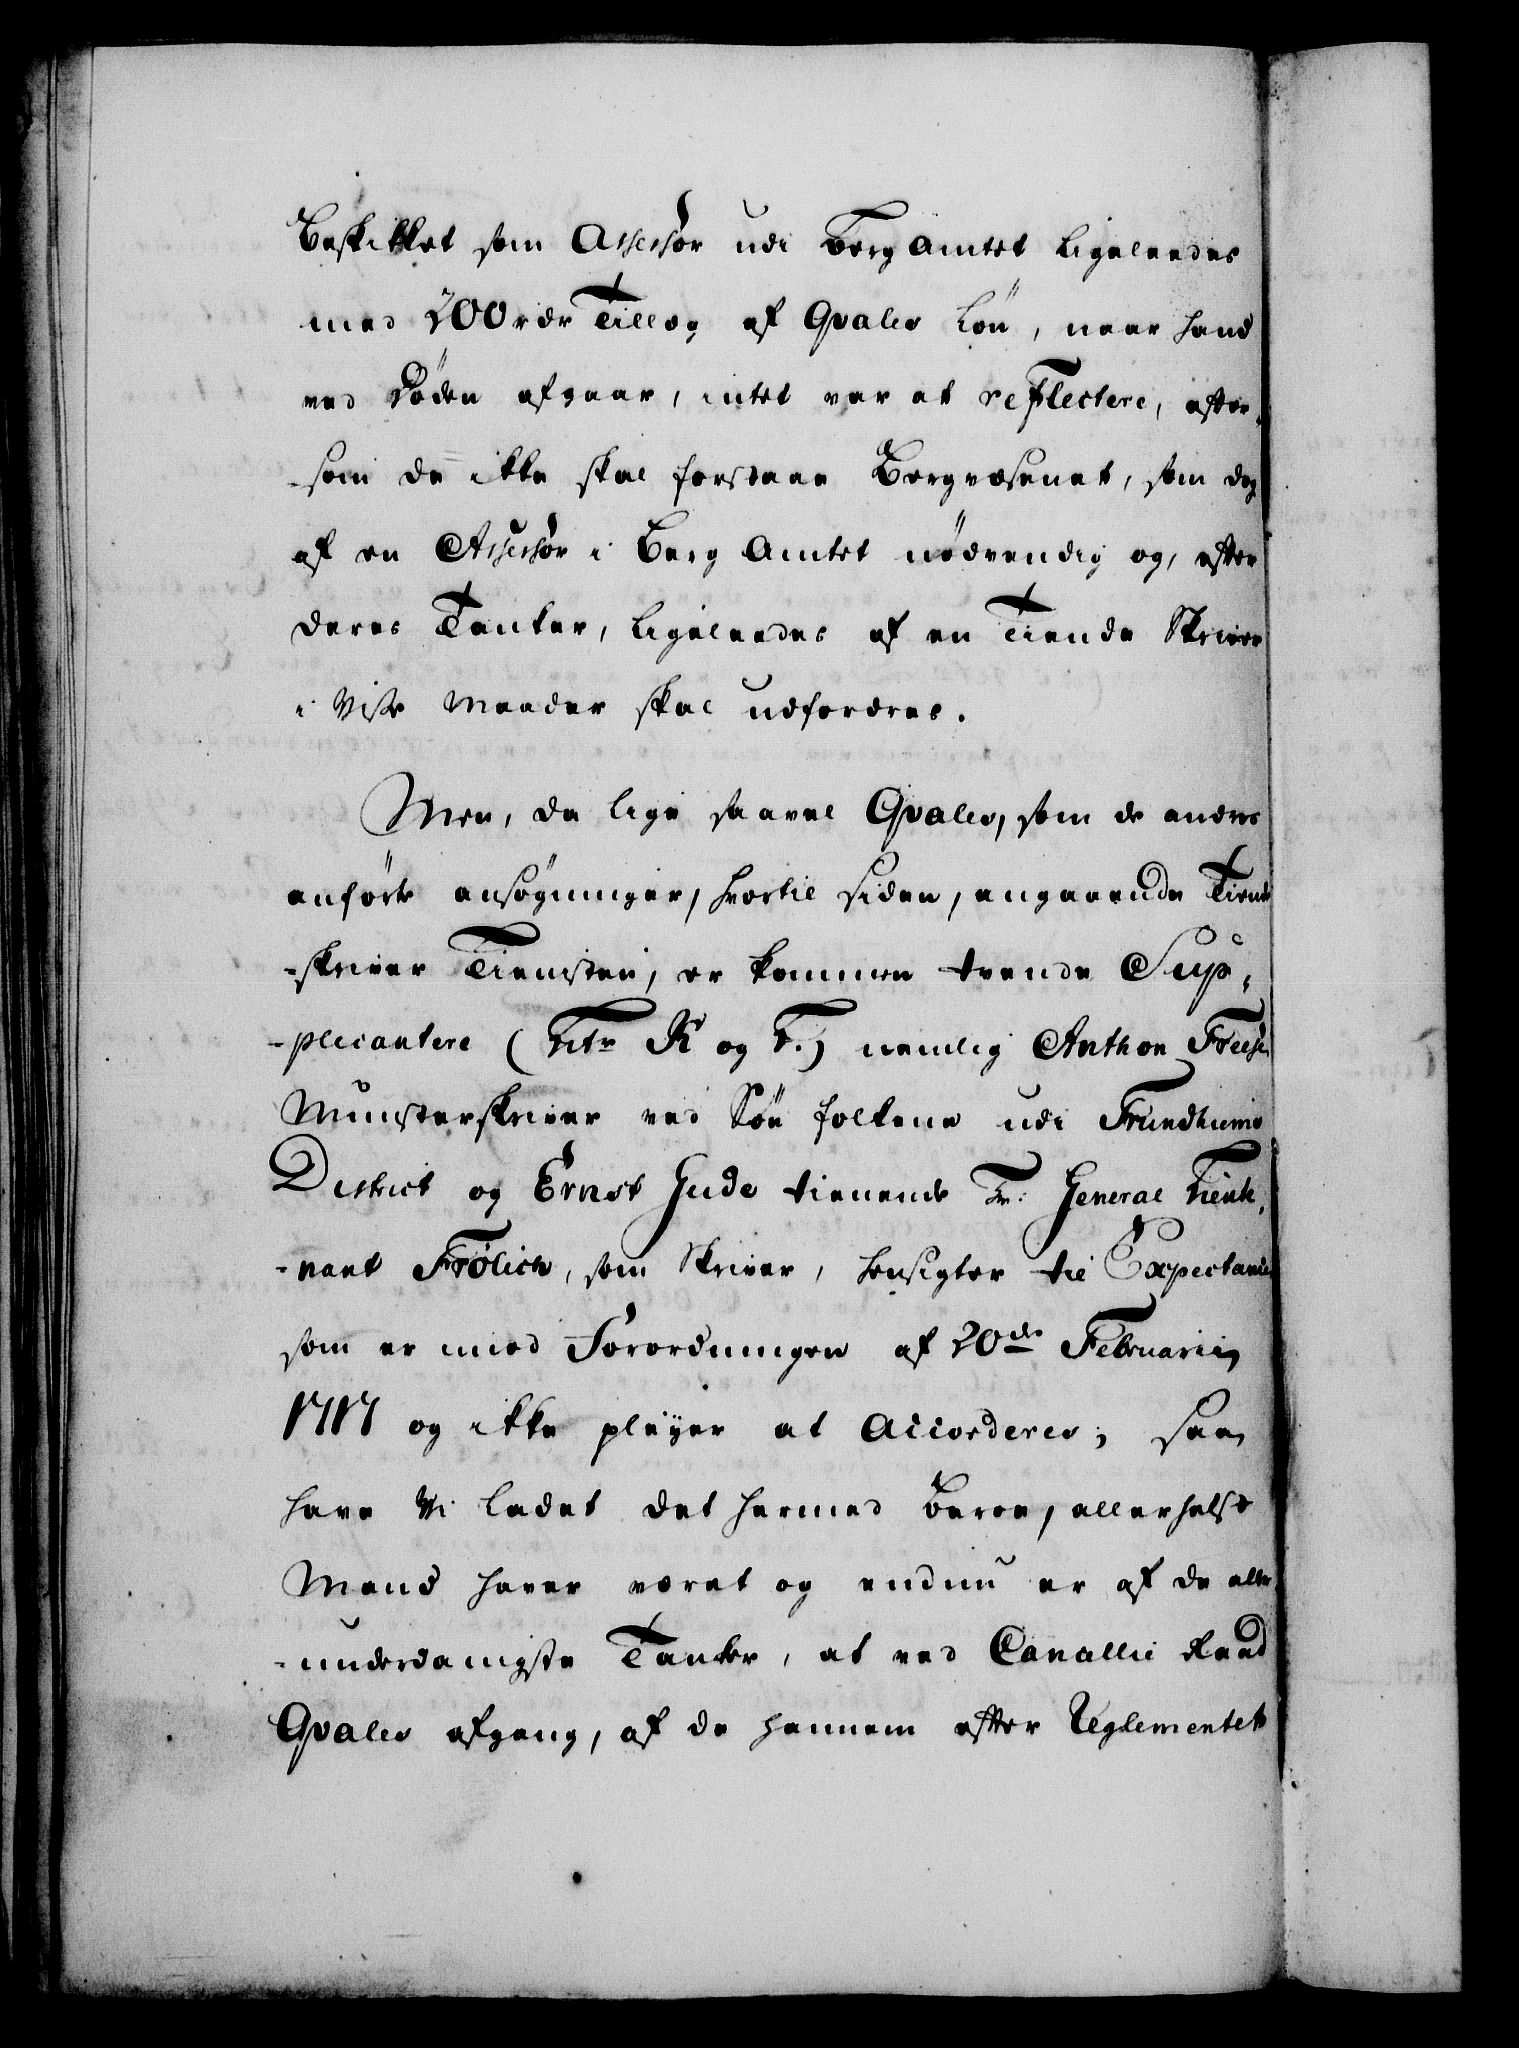 Beskikket som Assessor udi Berg Amtet ligeleedes
med 200 rdr Tillæg af Qvales Løn, naar hand
ved Døden afgaar, intet var at reflectere, efter-
-som de ikke skal forstaae Bergvæsenet, som dog
af en Assessor i Berg Amtet nødvendig og, efter
deres Tanker, ligeleedes af en Tiende Skriver
i visse Maader skal udfordres.
Men, da lige saavel Qvales, som de andres
anførte ansøgninger, hvortil siden, angaaende Tiende
-skriver Tienesten, er kommen tvende Sup-
-plicantere (Litr K og L.) nemlig Anthon Freese
Munsterskriver ved Søe folkene udi Trundhiems
District og Ernst Gude tienende Hr. General Lieute-
-nant Frölich, som Skriver, hensigter til Expectance
som er imod Forordningen af 20de Februarii
1717 og ikke pleyer at accorderes; saa
have Vi ladet det hermed beroe, allerhelst
Mand haver været og endnu er af de aller-
-underdanigste Tanker, at ved Cancellie Raad
Qvales afgang, af de hannem efter Reglementet